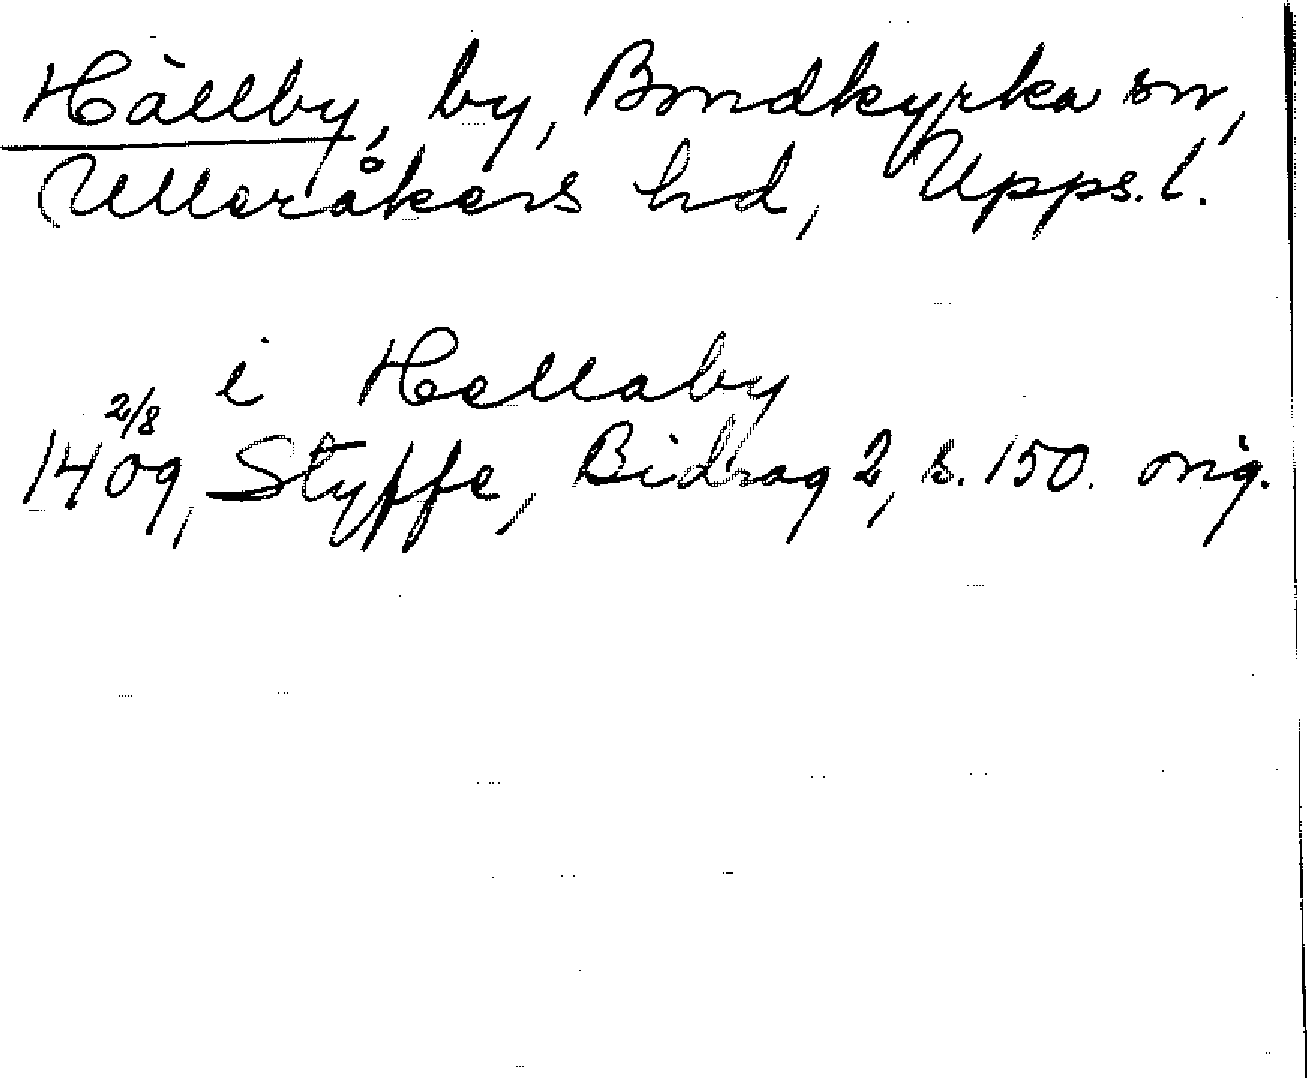 Hällby, by, Bondkyrka sn,
Ulleråkers hd, Upps. l.
i Hellaby
2/8
1409, Styffe, Bidrag 2, s. 150. orig.